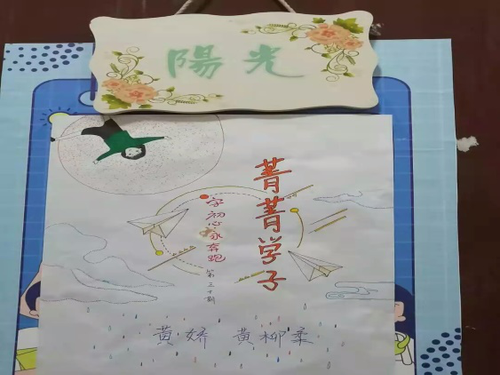 陽光
菁菁学子
守初心永奔跑 第三十期
黄娇 黄柳柔